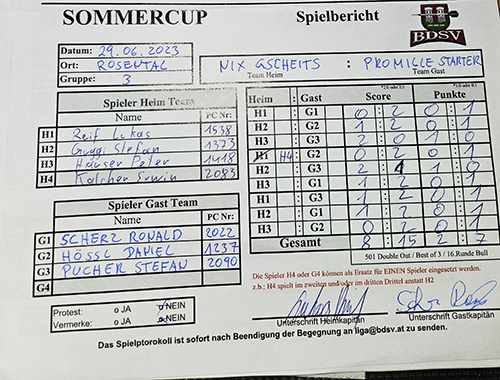 SOMMERCUP Spielbericht
BDSV
Datum: 29.06.2023
Ort: ROSENTAL
Gruppe: 3
NIX GSCHEITS : PROMILLE STARTER
Team Heim Team Gast
Spieler Heim Team
Name PC Nr:
H1 Reif Lukas 1558
H2 Guggi Stefan 1373
H3 Hauser Peter 1418
H4 Kalcher Erwin 2083
Spieler Gast Team
Name PC Nr:
G1 SCHERZ RONALD 2022
G2 HÖSSL DANIEL 1237
G3 PUCHER STEFAN 2090
G4
Heim : Gast Score Punkte
H1 : G1 0 : 2 0 : 1
H2 : G2 1 : 2 0 : 1
H3 : G3 2 : 0 1 : 0
H1 H4 : G2 0 : 2 0 : 1
H2 : G3 2 : 1 1 : 0
H3 : G1 1 : 2 0 : 1
H1 : G3 1 : 2 0 : 1
H2 : G1 1 : 2 0 : 1
H3 : G2 0 : 2 0 : 1
Gesamt 8 : 15 2 : 7
501 Double Out / Best of 3 / 16.Runde Bull
Die Spieler H4 oder G4 können als Ersatz für EINEN Spieler eingesetzt werden.
z.b.: H4 spielt im zweiten und/oder im dritten Drittel anstatt H2
Protest: o JA o NEIN
Vermerke: o JA o NEIN
Unterschrift Heimkapitän Unterschrift Gastkapitän
Das Spielptorokoll ist sofort nach Beendigung der Begegnung an liga@bdsv.at zu senden.